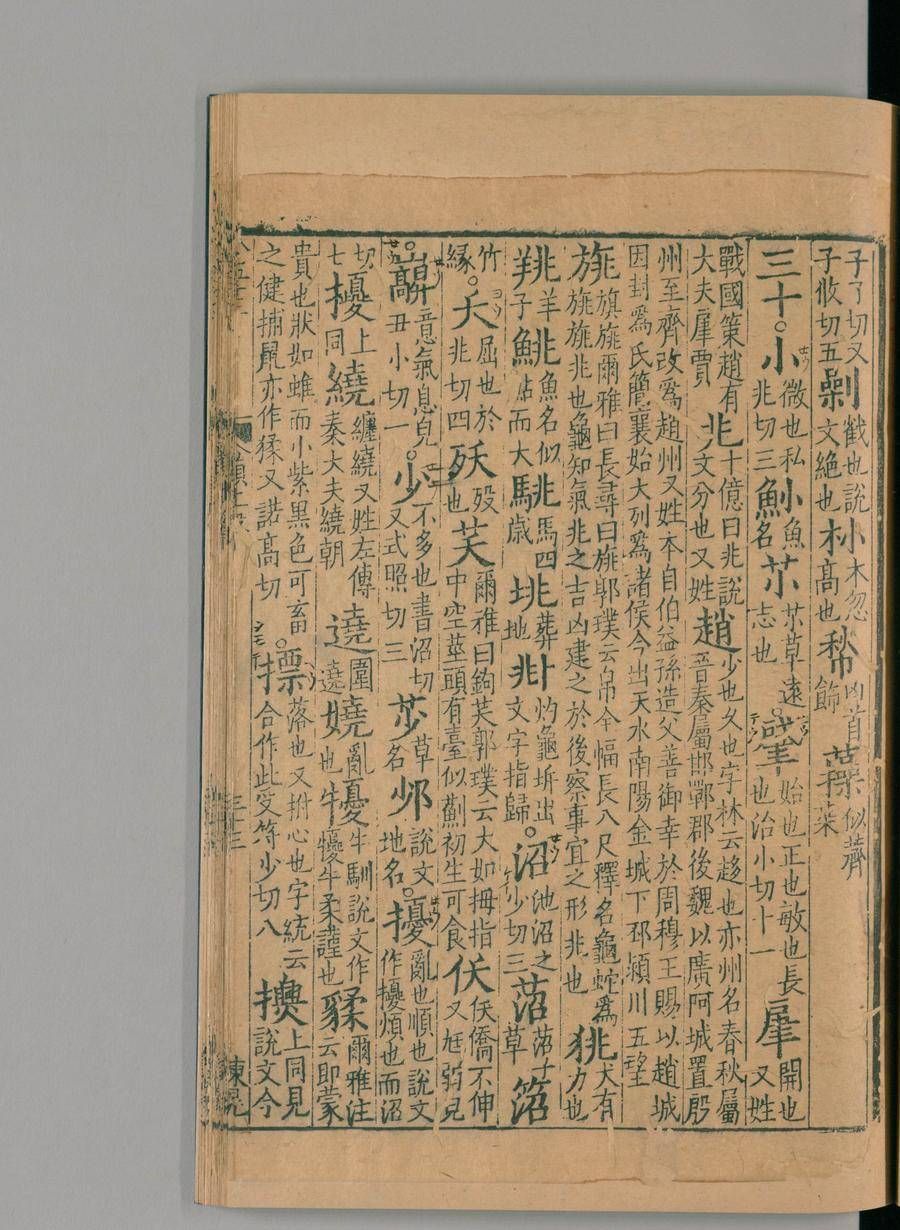 子了切又子攸切五劋截也說文絕也𣏂木忽高也𢄺㐫首飾䕯似薺菜
三十。小微也私兆切三魦小魚名𦬓𦬓草遠志也。肇始也正也敏也長也治小切十一肁開也又姓
戰國策趙有大夫肁賈兆十億曰兆說文分也又姓趙少也久也字林云趍也亦州名春秋屬晉秦屬邯鄲郡後魏以廣阿城置殷
州至齊改爲趙州又姓本自伯益孫造父善御幸於周穆王賜以趙城因封爲氏簡襄始大列爲諸侯今出天水南陽金城下邳潁川五望
旐旗旐爾雅曰長尋曰旐郭璞云帛全幅長八尺釋名龜蛇爲旐旐兆也龜知氣兆之吉凶建之於後察事宜之形兆也狣犬有力也
羊子鮡魚名似鮎而大馬四歲垗葬地𠧞灼龜坼出文字指歸。沼池沼之少切三菬菬子草𥬰
竹緣。夭屈也於兆切四殀歿也芺爾雅曰鉤芺郭璞云大如拇指中空莖頭有臺似薊初生可食仸仸僑不伸又尫弱皃
。意氣息皃丑小切一。少不多也書沼切又式照切三草名說文地名。擾亂也順也說文作擾煩也而沼
切七擾上同繞纏繞又姓左傳秦大夫繞朝遶圍遶嬈亂也犪牛馴說文作牛犪牛柔謹也㹛爾雅注云即蒙
貴也狀如蜼而小紫黑色可畜之健捕鼠亦作猱又諾高切。摽落也又拊心也字統云合作此受符少切八上同見說文今
三十三